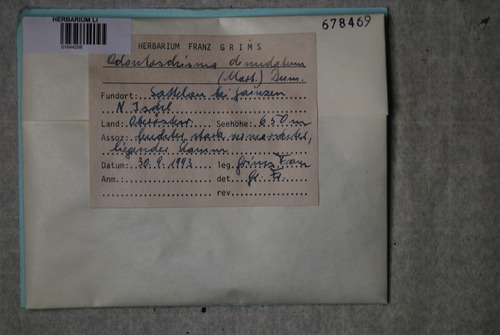 HERBARIUM LI
01644258
678469
HERBARIUM FRANZ GRIMS
Odontoschisma denudatum
(Mart.) Dum.
Fundort: Sattelau bei Jainzen
N. Ischl
Land: Oberösterr. Seehöhe: 650 m
Assoz: feuchter, stark vermorschter,
liegender Stamm
Datum: 30.9.1993 leg. Grims Franz
Anm.: det. Gr. Fr.
rev.